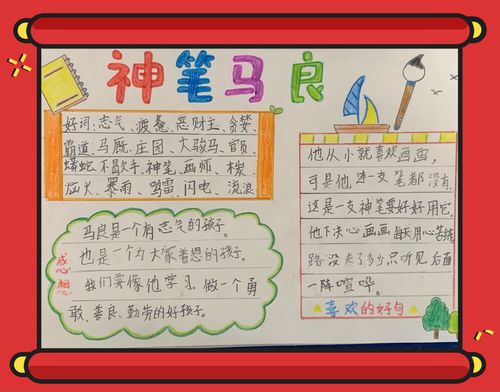 神笔马良
好词:志气、疲惫、恶财主、贪婪、
霸道、马厩、庄园、大骏马、官员、
蟒蛇、不歇手、神笔、画师、木炭
炉火、暴雨、鸣雷、闪电、流浪
感想
马良是一个有志气的孩子。
也是一个为大家着想的孩子。
我们要像他学习、做一个勇
敢、善良、勤劳的好孩子。
他从小就喜欢画画,
可是他连一支笔都没有,
这是一支神笔要好好用它。
他下决心画画每天用心苦练
路没走了多少只听见后面
一阵喧哗。
喜欢的好句